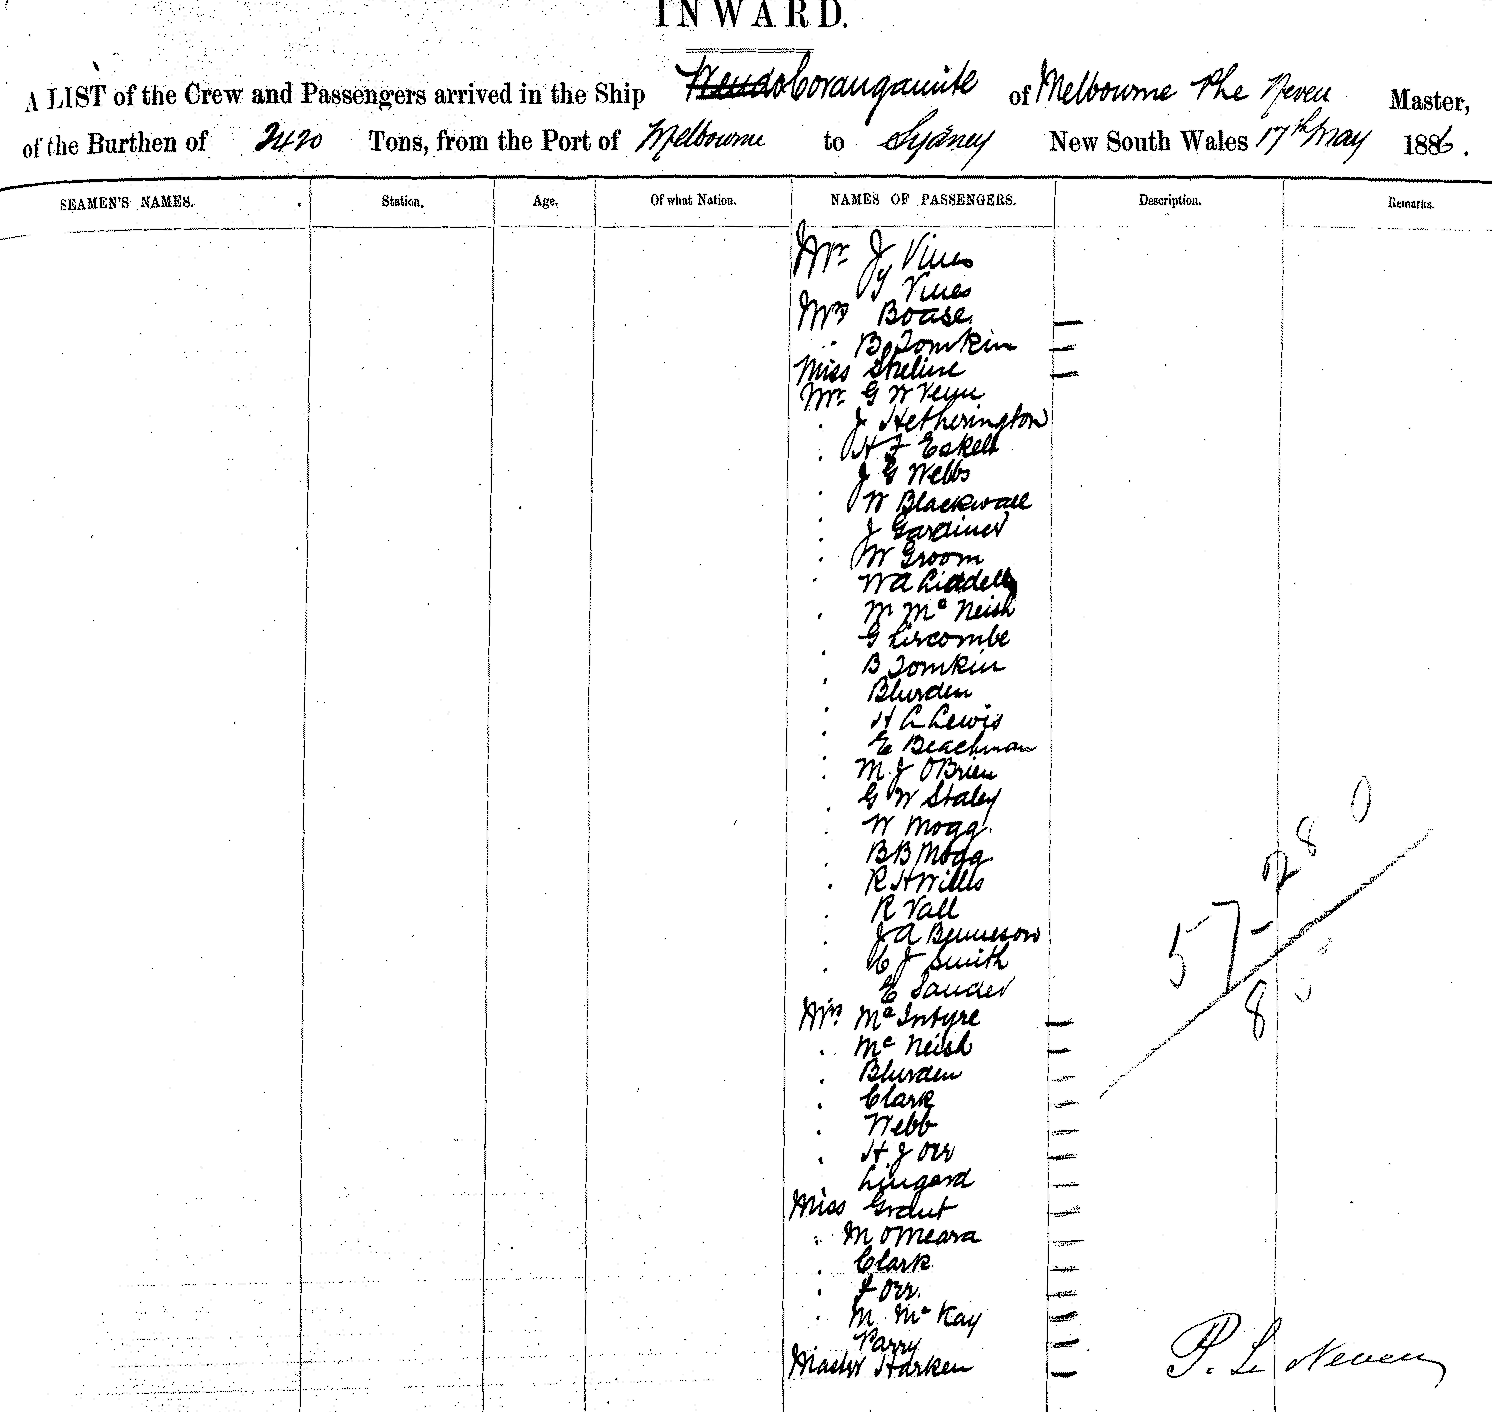 INWARD.
A LIST of the Crew and Passengers arrived in the Ship Corangamite of Melbourne Neven Master,
of the Burthen of 2420 Tons, from the Port of Melbourne to Sydney New South Wales 17th May 1886.
SEAMEN'S NAMES. Station. Age. Of what Nation. NAMES OF PASSENGERS. Description. Remarks.
Mr J Vines
Vines
Mrs Boase
B Tomkin
Miss
Mr G W Venn
J Hetherington
H F Eskell
J G Webbs
W Blackwall
J Gardiner
W Groom
W A Liddell
Mc Neish
G Circombe
B Tomkin
Blurden
H C Lewis
E Beachman
M J OBrien
G W Staley
W Mogg
B B Mogg
R H Willis
R Vall
J A Bennison
C J Smith
E Sander
Mrs Mc Intyre
Mc Neish
Blurden
Clark
Webb
H J Orr
Lingard
Miss Grant
M OMeara
Clark
J Orr.
M Mc Kay
Parry
Master Harken
57
28
8
0
P. Le Neven